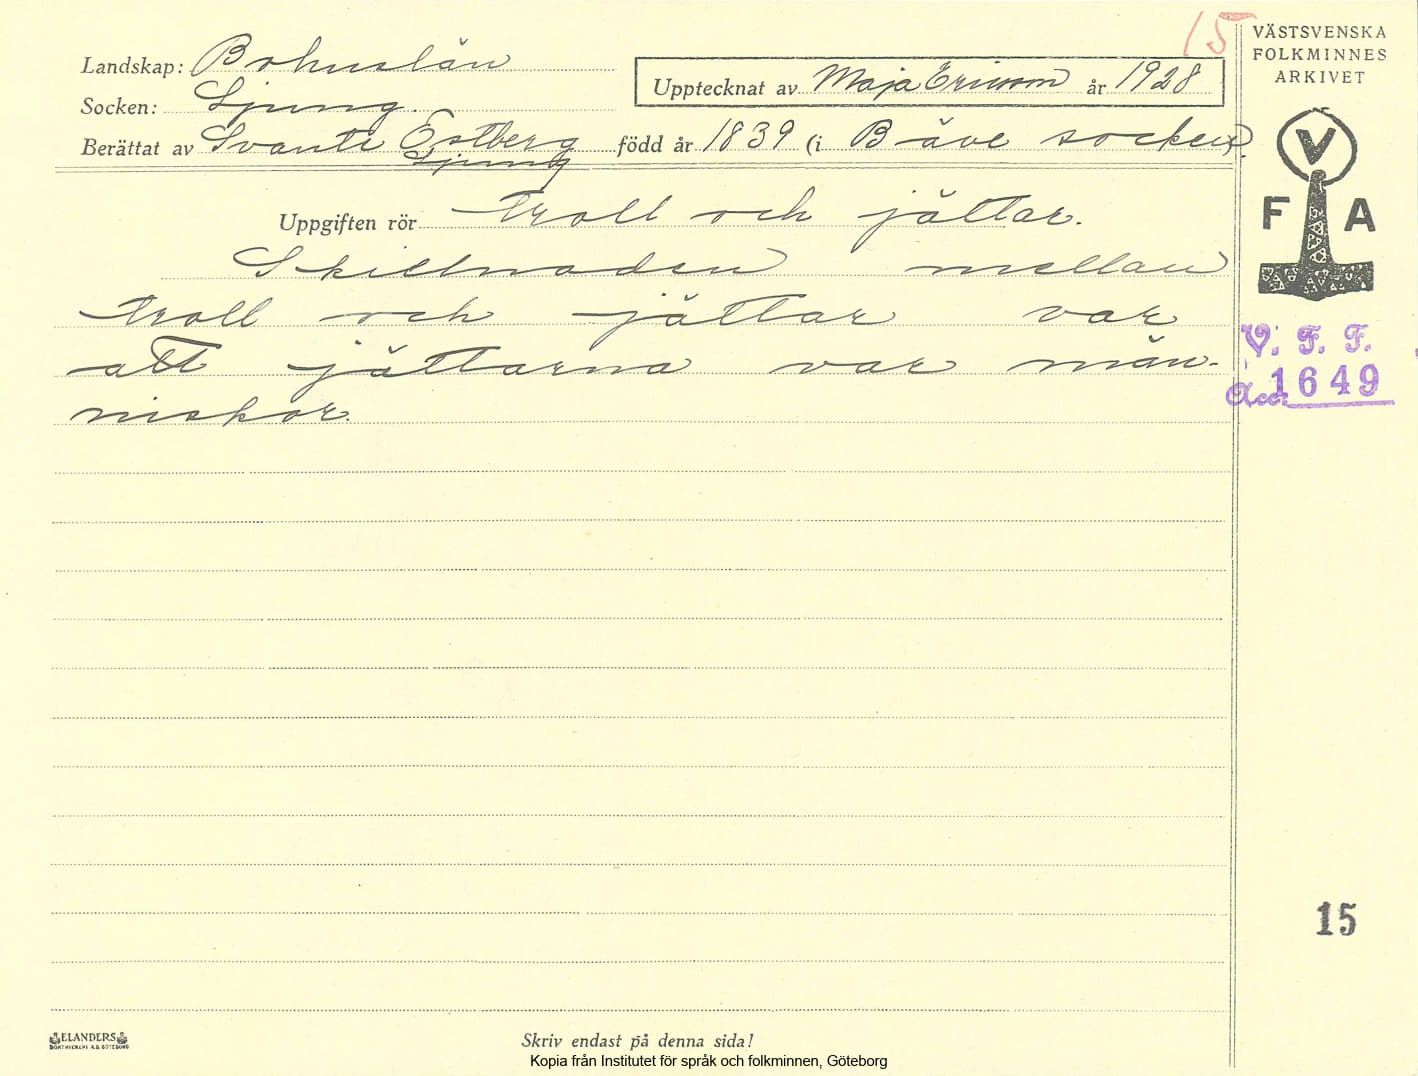 15
VÄSTSVENSKA
FOLKMINNES
ARKIVET
Landskap: Bohuslän
Upptecknat av Maja Ericson år 1928
Socken: Ljung.
Berättat av Svante Estberg född år 1839 (i Bäve socken).
Ljung
V
F A
Uppgiften rör Troll och jättar.
Skillnaden mellan
troll och jättar var
att jättarna var män-
niskor.
V. F. F.
Acc. 1649
15
ELANDERS
BOKTRYCKERI A.B. GÖTEBORG
Skriv endast på denna sida!
Kopia från Institutet för språk och folkminnen, Göteborg